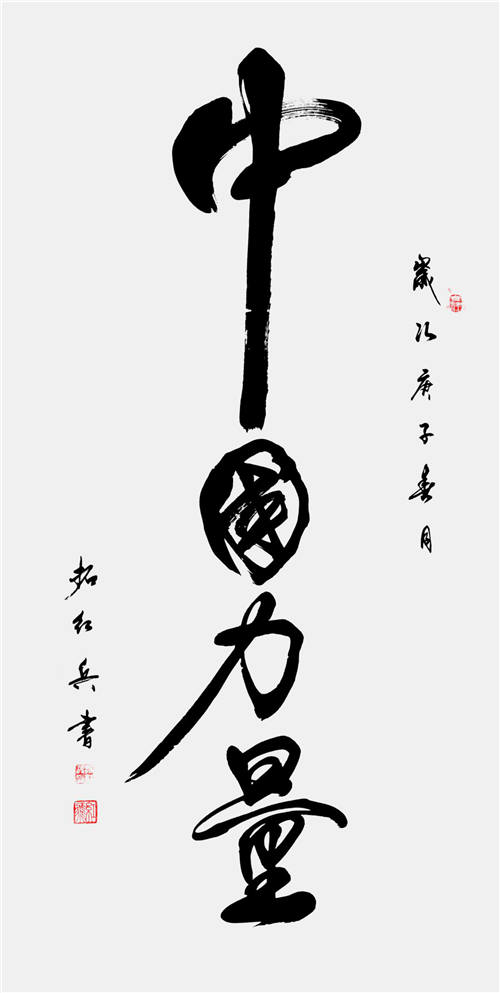 歲次庚子春月
中國力量
拓红兵書